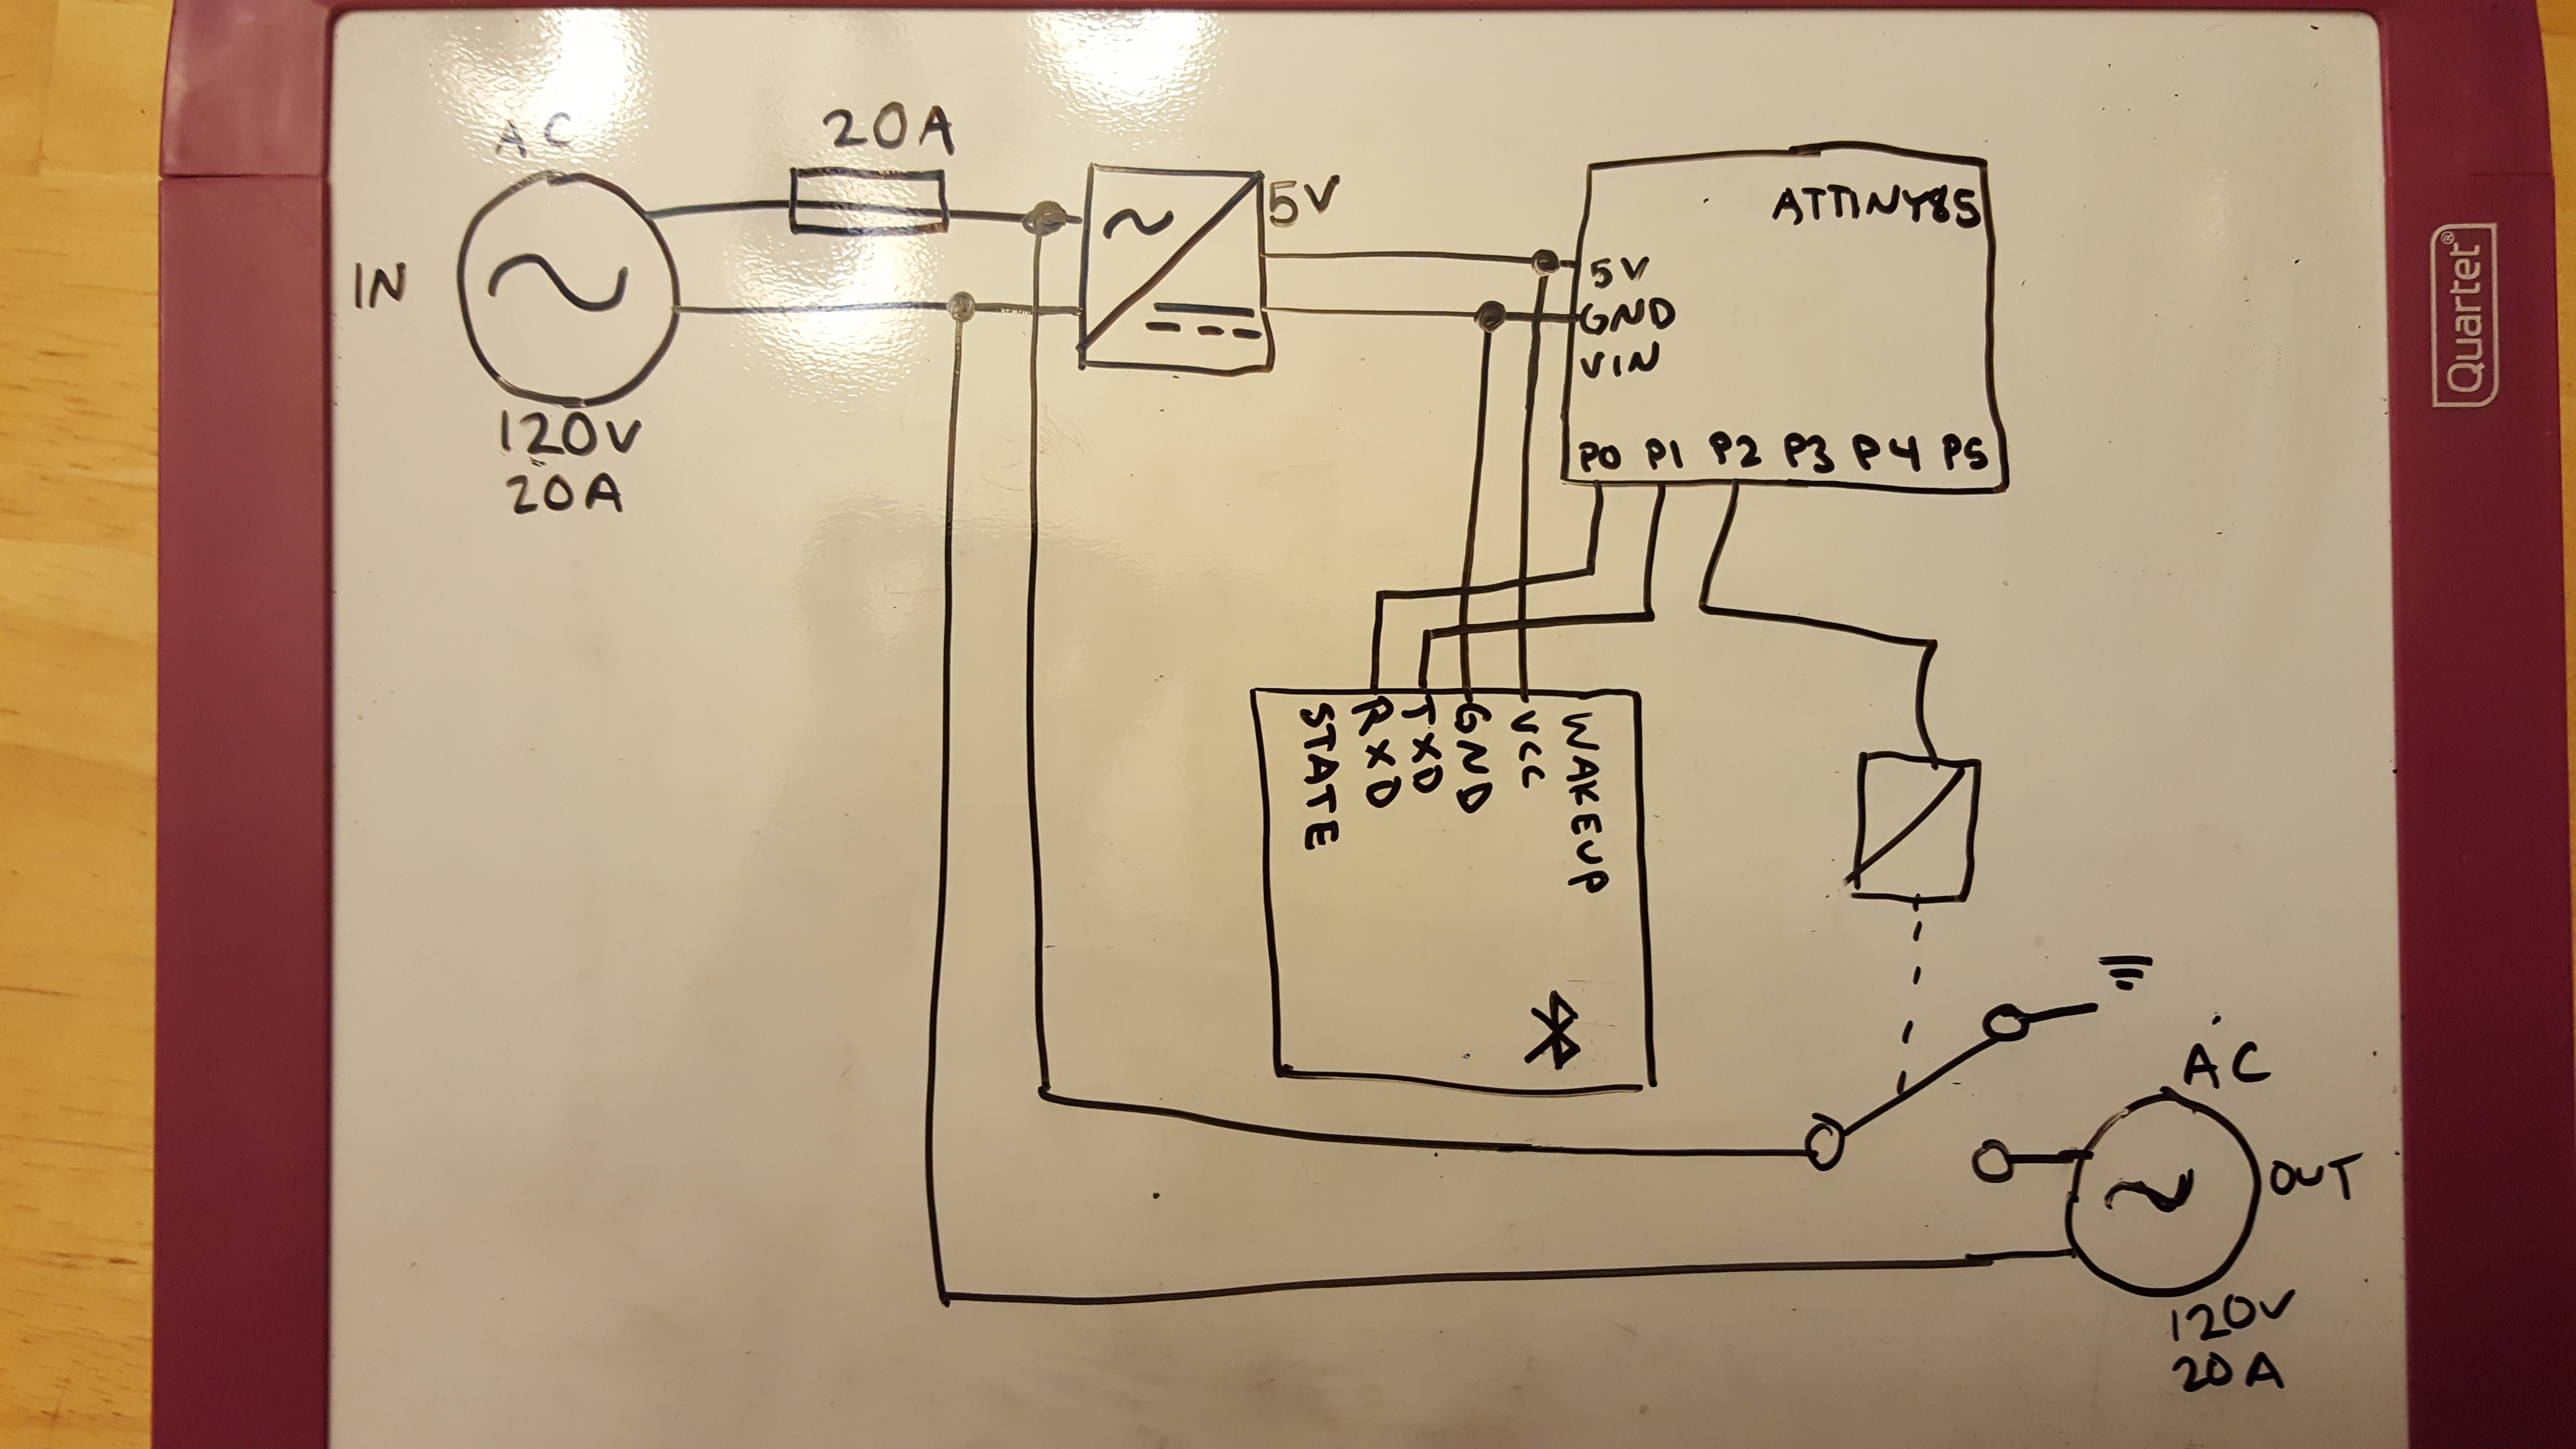 AC
20A
IN
120V
20A
5V
ATTINY85
5V
GND
VIN
P0 P1 P2 P3 P4 P5
STATE
RXD
TXD
GND
VCC
WAKEUP
AC
OUT
120V
20A
Quartet®